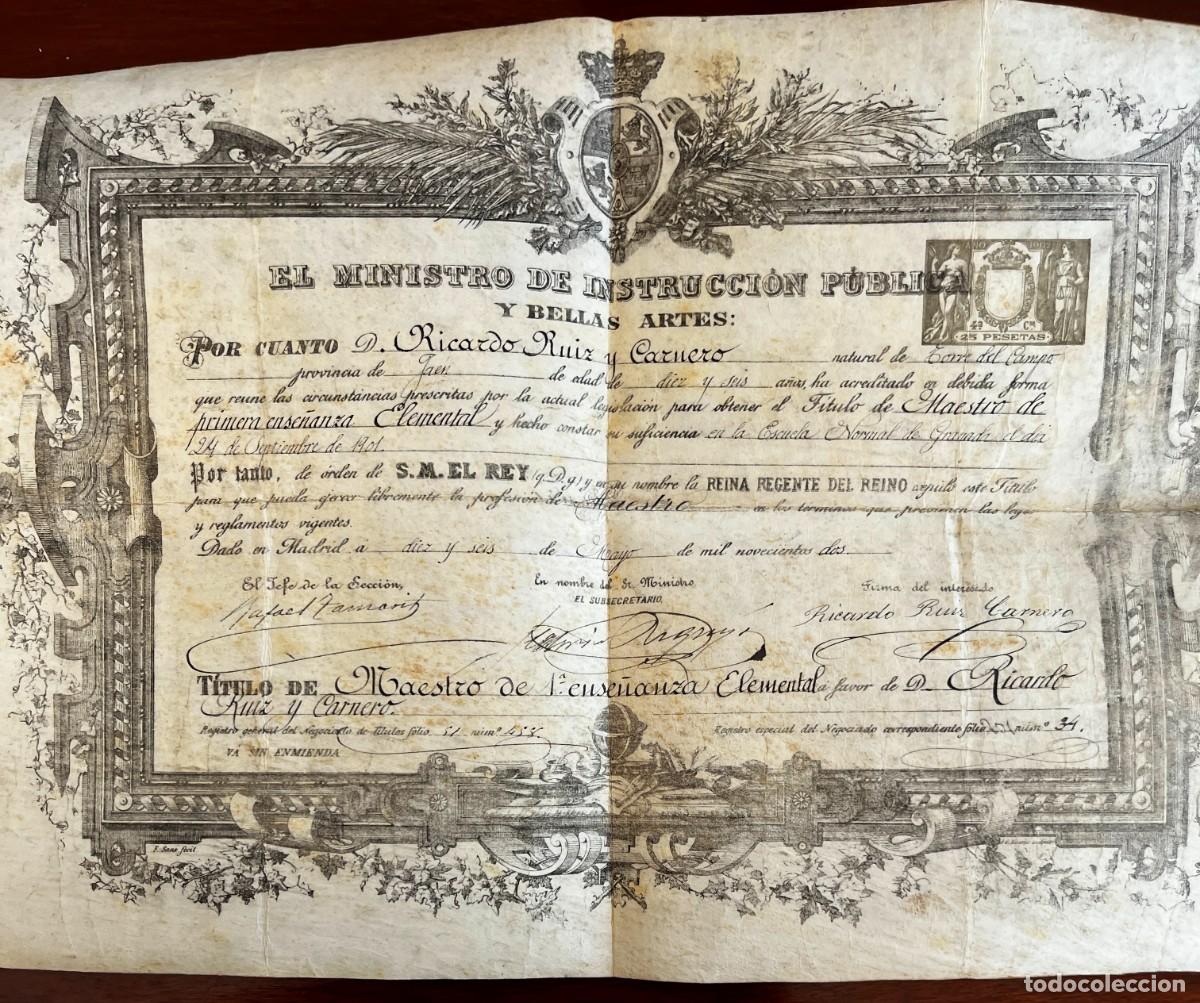 EL MINISTRO DE INSTRUCCIÓN PÚBLICA
Y BELLAS ARTES:
AÑO 1902
4ª Cª
25 PESETAS
POR CUANTO D. Ricardo Ruiz y Carnero natural de Torre del Campo
provincia de Jaen de edad de diez y seis años, ha acreditado en debida forma
que reune las circunstancias prescritas por la actual legislación para obtener el Título de Maestro de
primera enseñanza Elemental y hecho constar su suficiencia en la Escuela Normal de Granada el dia
24 de Septiembre de 1901.
Por tanto, de órden de S. M. EL REY (q. D. g.) y en su nombre la REINA REGENTE DEL REINO expido este Título
para que pueda ejercer libremente la profesión de Maestro en los terminos que previenen las leyes
y reglamentos vigentes.
Dado en Madrid á diez y seis de Mayo de mil novecientos dos
El Jefe de la Sección, En nombre del Sr. Ministro Firma del interesado
EL SUBSECRETARIO,
Rafael Tamarit Ricardo Ruiz Carnero
TÍTULO DE Maestro de 1ª enseñanza Elemental á favor de D. Ricardo
Ruiz y Carnero.
Registro general del Negociado de Títulos folio 51 núm.º Registro especial del Negociado correspondiente folio núm.º 34.
VA SIN ENMIENDA
fecit
todocoleccion